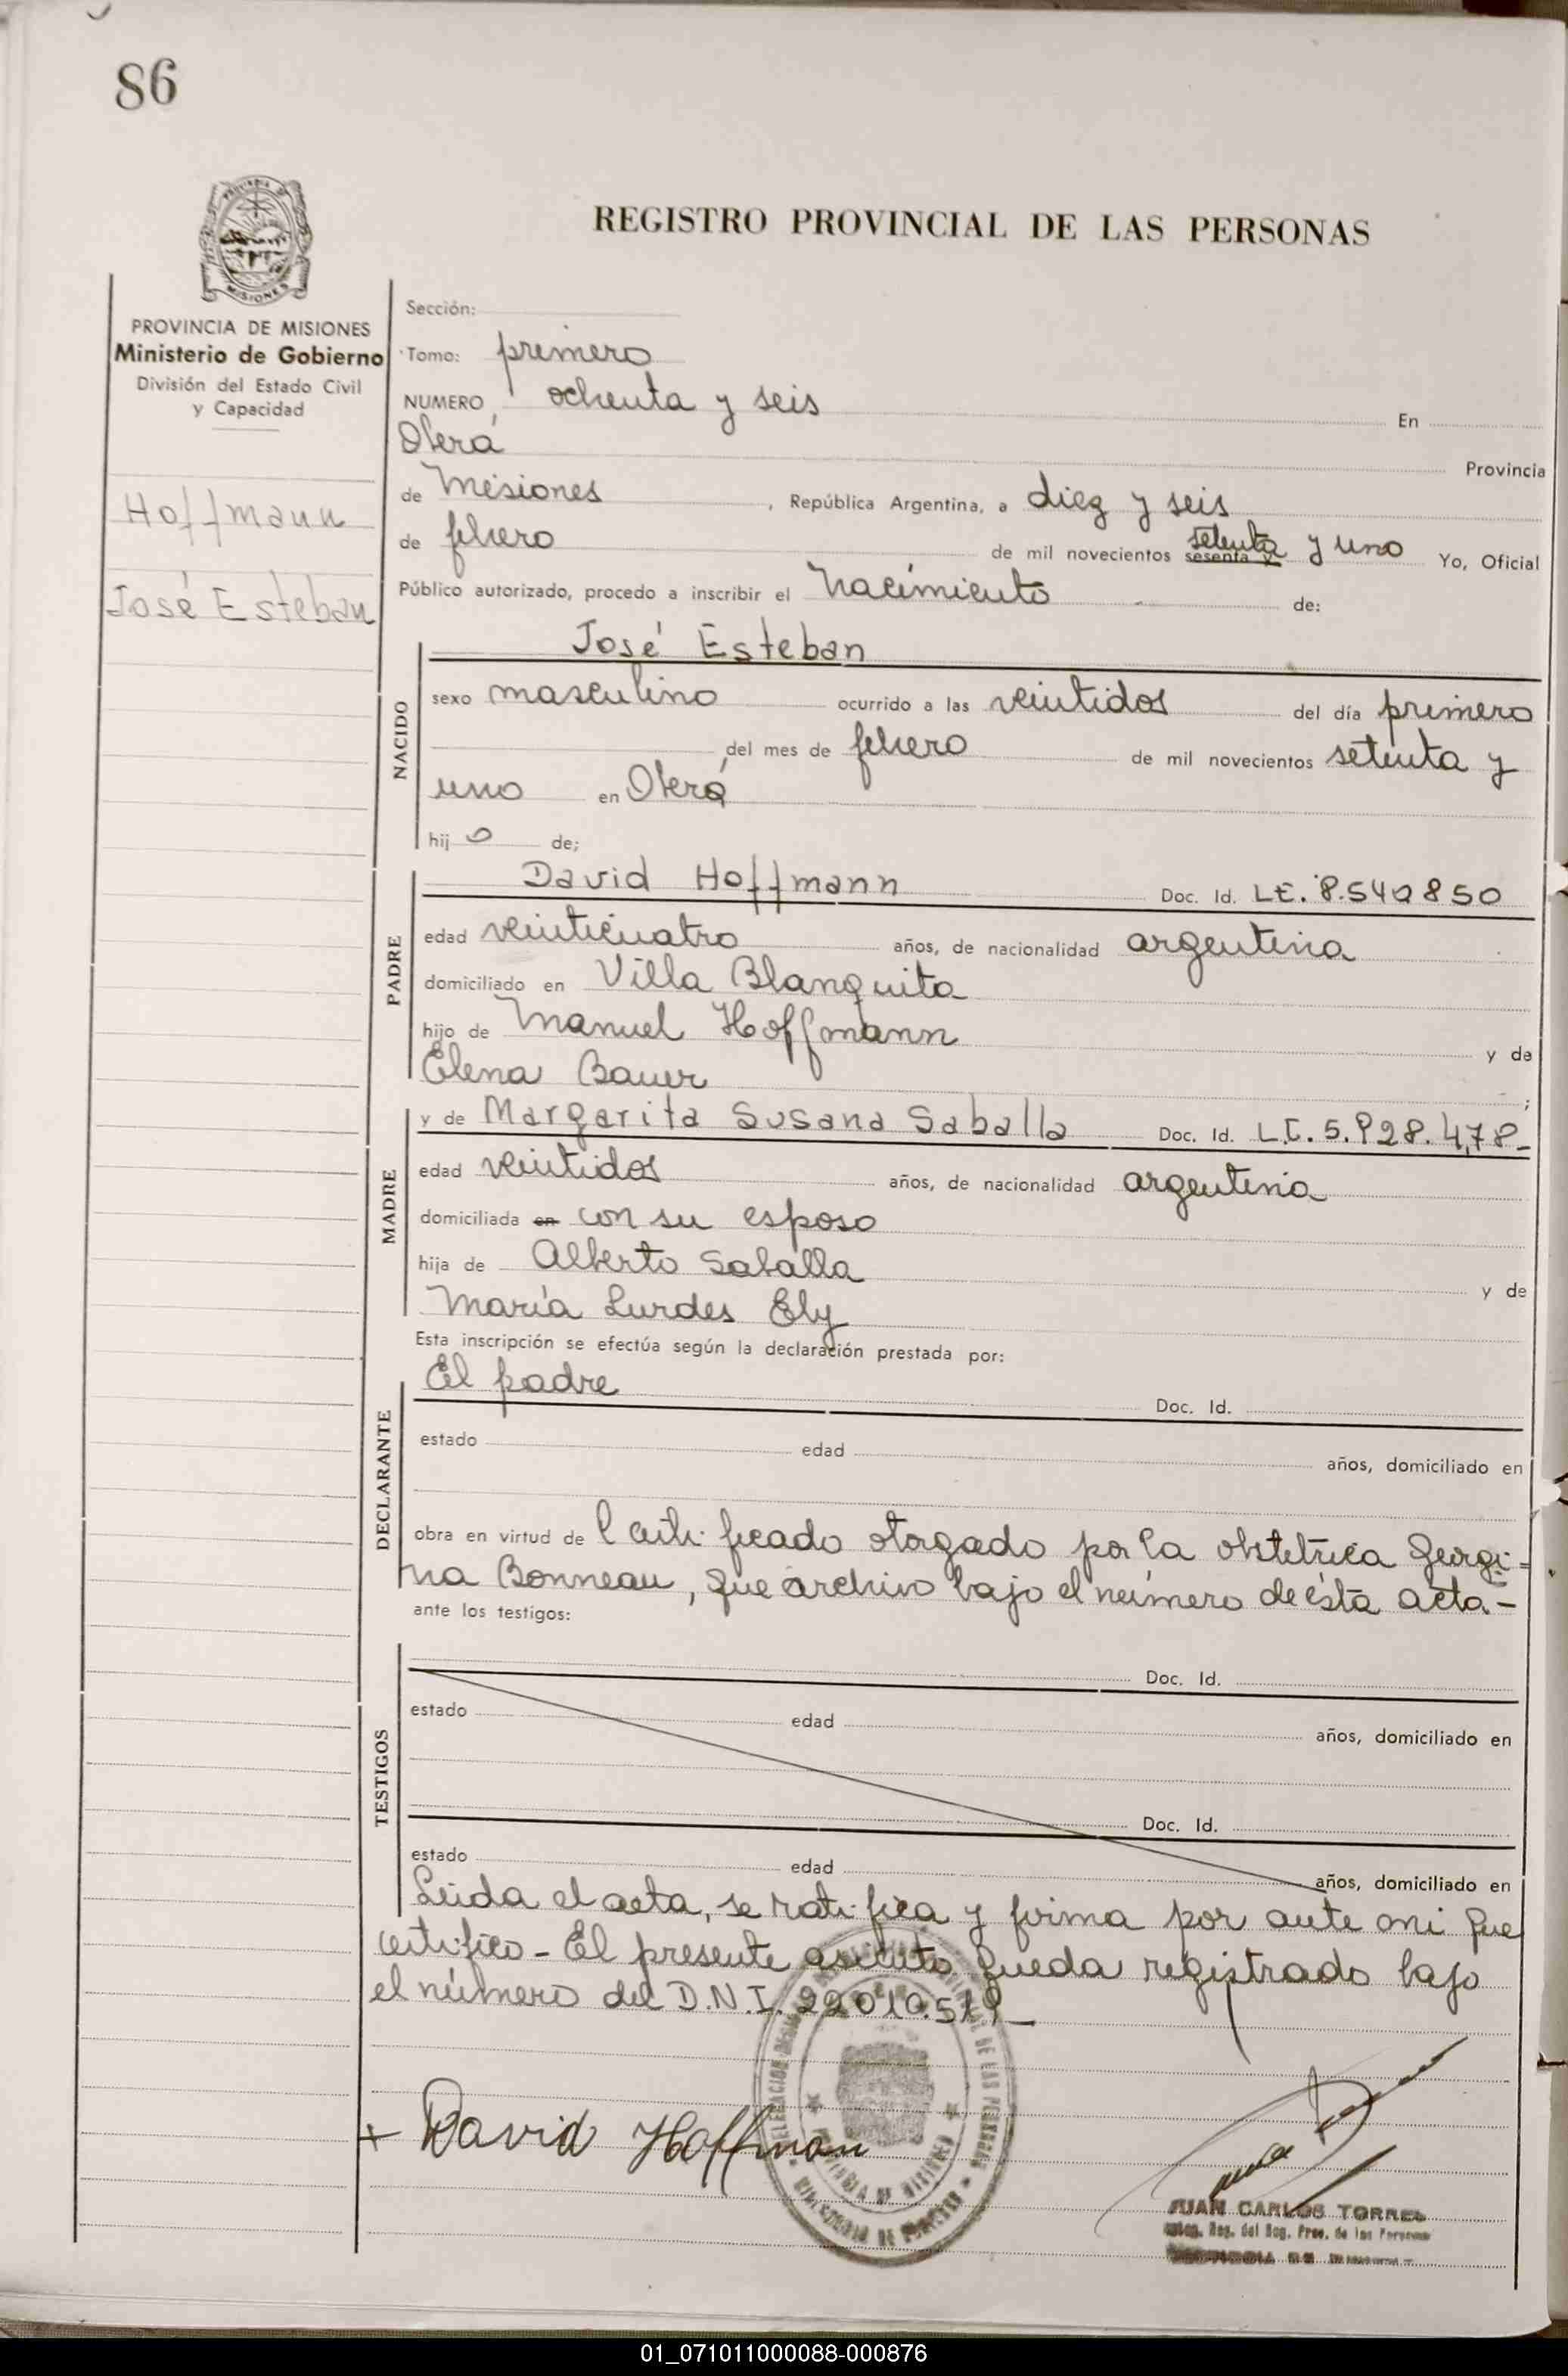 86
REGISTRO PROVINCIAL DE LAS PERSONAS
PROVINCIA DE MISIONES
Ministerio de Gobierno
División del Estado Civil
y Capacidad
Hoffmann
José Esteban
Sección:
Tomo: primero
NUMERO, ochenta y seis En
Oberá Provincia
de Misiones, República Argentina, a diez y seis
de febrero de mil novecientos sesenta y setenta y uno Yo, Oficial
Público autorizado, procedo a inscribir el nacimiento de:
José Esteban
NACIDO
sexo masculino ocurrido a las veintidos del día primero
del mes de febrero de mil novecientos setenta y
uno en Oberá
hij o de;
PADRE
David Hoffmann Doc. Id. L.E. 8.540850
edad veinticuatro años, de nacionalidad argentina
domiciliado en Villa Blanquita
hijo de Manuel Hoffmann y de
Elena Bauer ;
MADRE
y de Margarita Susana Saballa Doc. Id. L.C. 5.928.478-
edad veintidos años, de nacionalidad argentina
domiciliada en con su esposo
hija de Alberto Saballa y de
María Lurdes Ely
Esta inscripción se efectúa según la declaración prestada por:
DECLARANTE
El padre Doc. Id.
estado edad años, domiciliado en
obra en virtud de Certificado otorgado por la obstetrica Georgi=
na Bonneau, que archivo bajo el número de ésta acta-
ante los testigos:
TESTIGOS
Doc. Id.
estado edad años, domiciliado en
Doc. Id.
estado edad años, domiciliado en
Leida el acta, se ratifica y firma por ante mi que
certifico - El presente asiento queda registrado bajo
el número del D.N.I. 22010.519-
+ David Hoffman
JUAN CARLOS TORRES
01_071011000088-000876